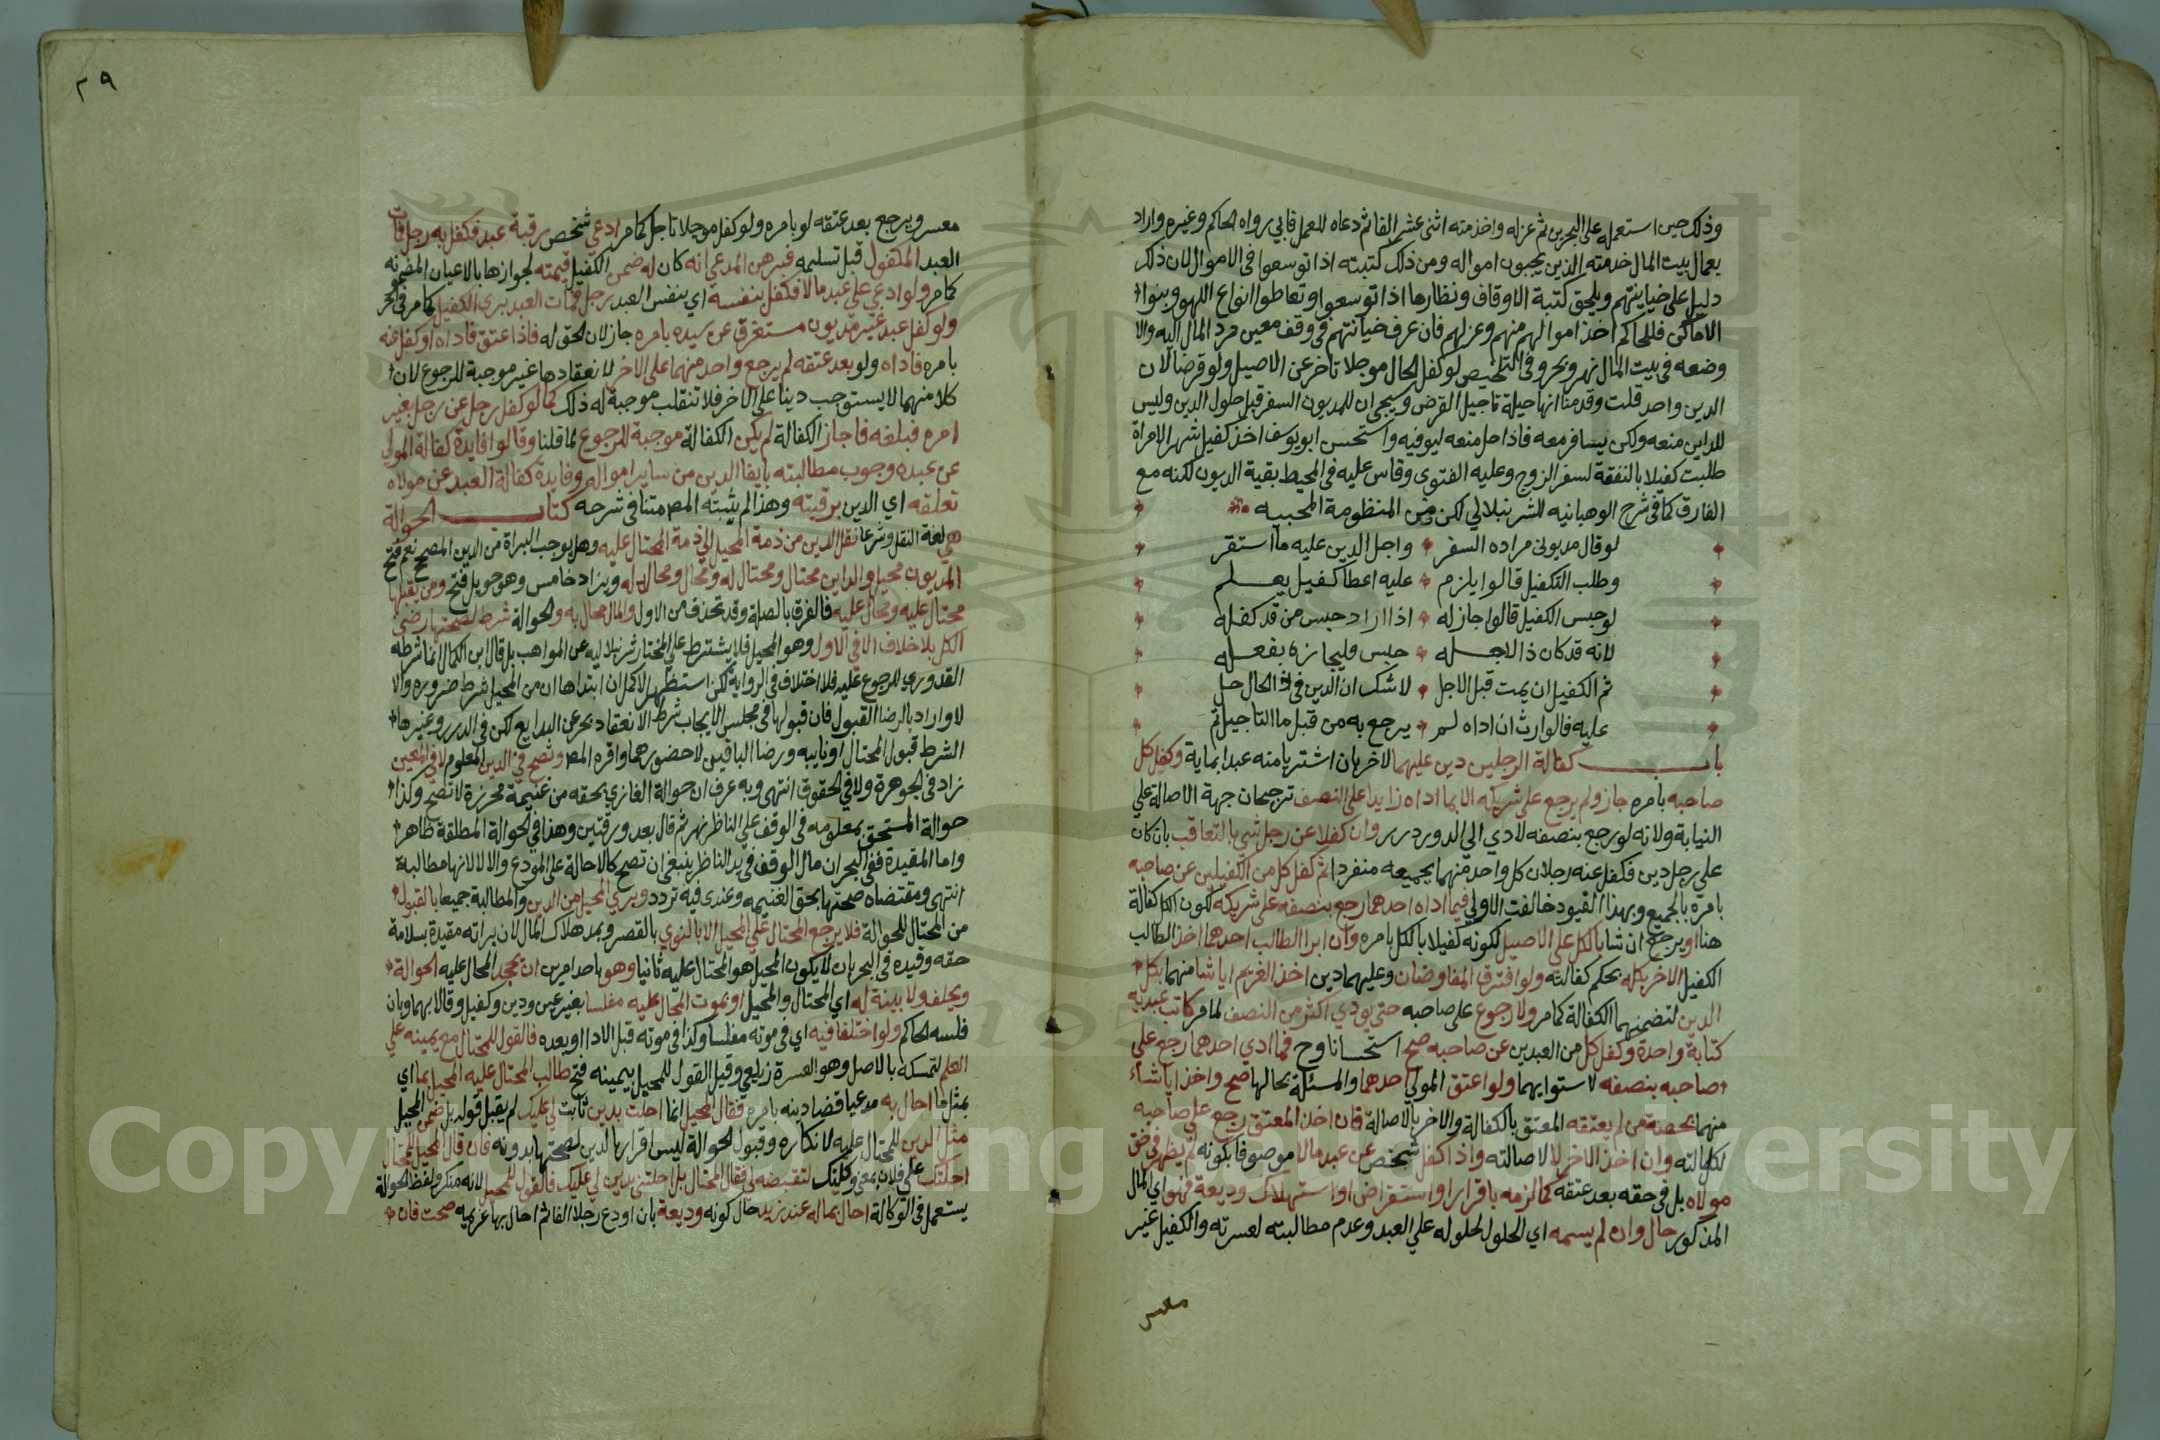 وذلك حين استعمله على البحرين ثم عزله واخذ منه اثنى عشر الفا ثم دعاه للعمل فابي رواه الحاكم وغيره واراد
بعمال بيت المال خدمته الذين يجبون امواله ومن ذلك كتبته اذا توسعوا في الاموال لان ذلك
دليل على خيانتهم ويلحق كتبة الاوقاف ونظارها اذا توسعوا وتعاطوا انواع اللهو وبنوا
الاماكن فللحاكم اخذ اموالهم منهم وعزلهم فان عرف خيانتهم في وقف معين رد المال اليه والا
وضعه في بيت المال نهر وبحر وفي التلخيص لو كفل الحال موجلا تاخر عن الاصيل ولو قرضا لان
الدين واحد قلت وقدمنا انها حيلة تاجيل القرض وسيجي ان للمديون السفر قبل حلول الدين وليس
للداين منعه ولكن يسافر معه فاذا حل منعه ليوفيه واستحسن ابو يوسف اخذ كفيل شهر لامراة
طلبت كفيلا بالنفقة لسفر الزوج وعليه الفتوى وقاس عليه في المحيط بقية الديون لكنه مع
الفارق كما في شرح الوهبانيه للشرنبلالي لكن من المنظومة المحبيه
لو قال مديوني مراده السفر واجل الدين عليه ما استقر
وطلب التكفيل قالوا يلزم عليه اعطا كفيل يعلم
لو حبس الكفيل قالوا جاز له اذا اراد حبس من قد كفله
لانه قد كان ذا لاجله حبس فليجازه بفعله
ثم الكفيل ان يمت قبل الاجل لا شك ان الدين في ذا الحال حل
عليه فالوارث ان اداه لم يرجع به من قبل ما التاجيل تم
باب كفالة الرجلين دين عليهما لاخر بان اشتريا منه عبدا بماية وكفل كل
صاحبه بامره جاز ولم يرجع على شريكه الا بما اداه زايدا على النصف ترجيحا لجهة الاصالة على
النيابة ولانه لو رجع بنصفه لادي الي الدور درر وان كفلا عن رجل شي بالتعاقب بان كان
علي رجل دين فكفل عنه رجلان كل واحد منهما بجميعه منفردا ثم كفل كل من الكفيلين عن صاحبه
بامره بالجميع وبهذا القيود خالفت الاولي فيما اداه احدهما رجع بنصفه على شريكه لكون الكل كفالة
هنا او يرجع ان شا بالكل على الاصيل لكونه كفيلا بالكل بامره وان ابرا الطالب احدهما اخذ الطالب
الكفيل الاخر بكله بحكم كفالته ولو افترق المفاوضان وعليهما دين اخذ الغريم ايا شا منهما بكل
الدين لتضمنهما الكفالة كما مر ولا رجوع على صاحبه حتى يودي اكثر من النصف لما مر كاتب عبديه
كتابة واحدة وكفل كل من العبدين عن صاحبه صح استحسانا وح فما ادي احدهما رجع علي
صاحبه بنصفه لاستوايهما ولو اعتق المولي احدهما والمسئلة بحالها صح واخذ ايا شاء
منهما بحصة من لم يعتقه المعتق بالكفالة والاخر بالاصالة فان اخذ المعتق رجع علي صاحبه
لكفالته وان اخذ الاخر لا لاصالته واذا كفل شخص عن عبد مالا موصوفا بكونه لم يظهر في حق
مولاه بل في حقه بعد عتقه كما لزمه باقرار او استقراض او استهلاك وديعة فهو اي المال
المذكور حال وان لم يسمه اي الحلول لحلوله علي العبد وعدم مطالبته لعسرته والكفيل غير
معسر
٢٩
معسر ويرجع بعد عتقه لو بامره ولو كفل موجلا تاجل كما مر ادعي شخص رقبة عبد فكفل به رجل فمات
العبد المكفول قبل تسليمه فبرهن المدعي انه كان له ضمن الكفيل قيمته لجوازها بالاعيان المضمونه
كما مر ولو ادعي على عبد مالا فكفل بنفسه اي بنفس العبد رجل فمات العبد بري الكفيل كما مر في الحر
ولو كفل عبد غير مديون مستغرق عن سيده بامره جاز لان الحق له فاذا عتق فاداه او كفل عنه
بامره فاداه ولو بعد عتقه لم يرجع واحد منهما على الاخر لانعقادها غير موجبة للرجوع لان
كلا منهما لا يستوجب دينا على الاخر فلا تنقلب موجبة له ذلك كما لو كفل رجل عن رجل بغير
امره فبلغه فاجاز الكفالة لم يكن الكفالة موجبة للرجوع لما قلنا وقالوا فايدة كفالة المولي
عن عبده وجوب مطالبته بايفا الدين من ساير امواله وفايدة كفالة العبد عن مولاه
تعلقه اي الدين برقبته وهذا لم يثبته المص متنا في شرحه كتاب الحوالة
هي لغة النقل وشرعا نقل الدين من ذمة المحيل الي ذمة المحتال عليه وهل يوجب البراة من الدين المصحح نعم فتح
المديون محيل والداين محتال ومحتال له ومحال ومحال له ويزاد خامس وهو حويل فتح ومن يقبلها
محتال عليه ومحال عليه فالفرق بالصلة وقد تحذف من الاول والمال محال به والحوالة شرط لصحتها رضى
الكل بلا خلاف الا في الاول وهو المحيل فلا يشترط علي المختار شرنبلاليه عن المواهب بل قال ابن الكمال انما شرطه
القدوري للرجوع عليه فلا اختلاف في الرواية لكن استظهر الاكمل ان ابتداها ان من المحيل شرط ضروره والا
لا واراد بالرضا القبول فان قبولها في مجلس الايجاب شرط الانعقاد بحر عن البدايع لكن في الدرر وغيرها
الشرط قبول المحتال او نايبه ورضا الباقين لا حضورهما واقره المص وتصح في الدين المعلوم لا في العين
زاد في الجوهرة ولا في الحقوق انتهى وبه عرف ان حوالة الغازي بحقه من غنيمة محرزة لا تصح وكذا
حوالة المستحق بمعلومه في الوقف علي الناظر نهر ثم قال بعد ورقتين وهذا في الحوالة المطلقة ظاهر
واما المقيدة ففي البحر ان مال الوقف في يد الناظر ينبغي ان تصح كالاحالة على المودع والا لا لانها مطالبة
انتهى ومقتضاه صحتها بحق الغنيمه وعندي فيه تردد وبري المحيل من الدين والمطالبة جميعا بالقبول
من المحتال للحوالة فلا يرجع المحتال علي المحيل الا بالتوي بالقصر ويمد هلاك المال لان براته مقيدة بسلامة
حقه وقيده في البحر بان لا يكون المحيل هو المحتال عليه ثانيا وهو باحد امرين ان يجحد المحال عليه الحوالة
ويحلف ولا بينة له اي المحتال والمحيل او يموت المحال عليه مفلسا بغير عين ودين وكفيل وقالا بهما وبان
فلسه الحاكم ولو اختلفا فيه اي في موته مفلسا وكذا في موته قبل الادا او بعده فالقول للمحتال مع يمينه علي
العلم لتمسكه بالاصل وهو العسرة زيلعي وقيل القول للمحيل بيمينه فتح طالب المحتال عليه المحيل بما اي
بمثل ما احال به مدعيا قضا دينه بامره فقال المحيل انما احلت بدين ثابت لي عليك لم يقبل قوله بل ضمن المحيل
مثل الدين للمحتال عليه لانكاره وقبول الحوالة ليس اقرارا بالدين لصحتها بدونه فان قال المحيل للمحتال
احلتك علي فلان بمعني وكلتك لتقبضه لي فقال المحتال بل احلتني بدين لي عليك فالقول للمحيل لانه منكر ولفظ الحوالة
يستعمل في الوكالة احال بماله عند زيد حال كونه وديعة بان اودع رجلا الفا ثم احال بها غريمه صحت فان
Copyright © King Saud University